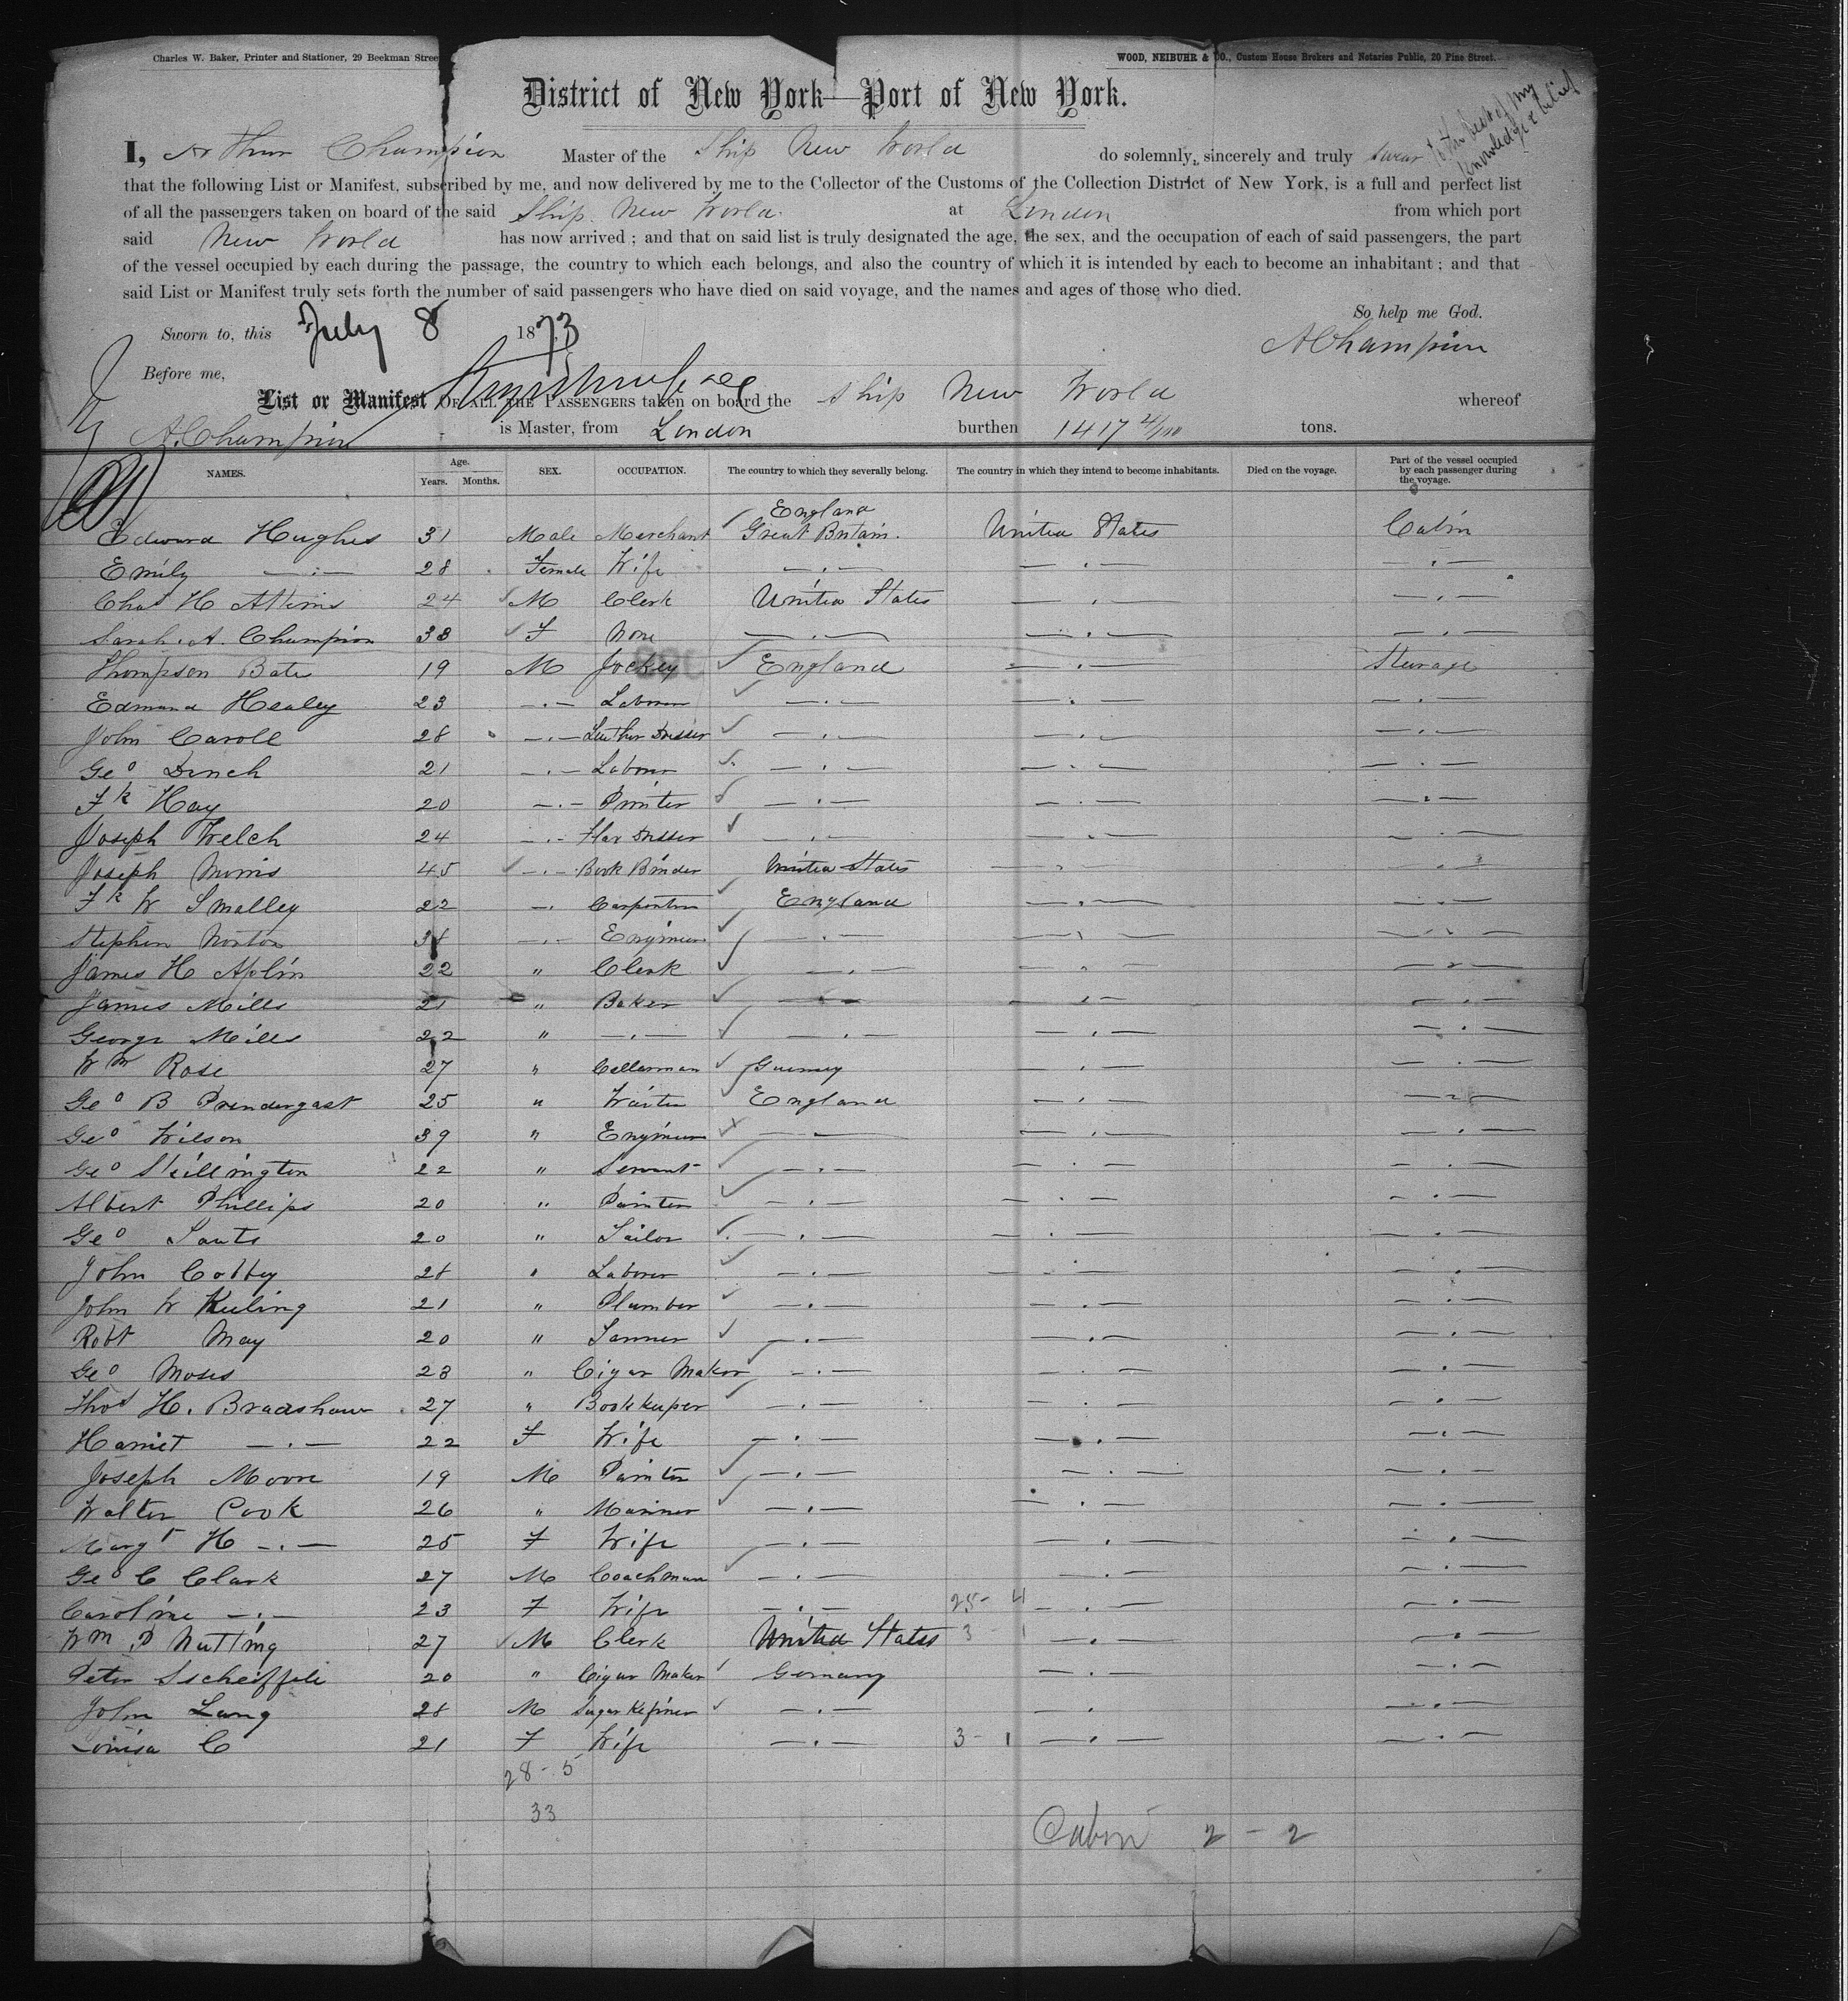 Charles W. Baker, Printer and Stationer, 29 Beekman Street
WOOD, NEIBUHR & CO., Custom House Brokers and Notaries Public, 20 Pine Street.
District of New York—Port of New York.
I, Arthur Champion Master of the Ship New World do solemnly, sincerely and truly swear to the best of my knowledge & belief
that the following List or Manifest, subscribed by me, and now delivered by me to the Collector of the Customs of the Collection District of New York, is a full and perfect list
of all the passengers taken on board of the said Ship New World at London from which port
said New World has now arrived ; and that on said list is truly designated the age, the sex, and the occupation of each of said passengers, the part
of the vessel occupied by each during the passage, the country to which each belongs, and also the country of which it is intended by each to become an inhabitant ; and that
said List or Manifest truly sets forth the number of said passengers who have died on said voyage, and the names and ages of those who died.
So help me God.
Sworn to, this July 8 1873
AChampion
Before me,
List or Manifest OF ALL THE PASSENGERS taken on board the Ship New World whereof
A. Champion is Master, from London burthen 1417 21/100 tons.
NAMES. Age. Years. Months. SEX. OCCUPATION. The country to which they severally belong. The country in which they intend to become inhabitants. Died on the voyage. Part of the vessel occupied by each passenger during the voyage.
England
Edward Hughes 31 Male Merchant Great Britain. United States Cabin
Emily —.— 28 Female Wife —.— —.— —.—
Chas H Atkins 24 M Clerk United States —.— —.—
Sarah A. Champion 38 F None —.— —.— —.—
Thompson Bate 19 M Jockey England —.— Steerage
Edmund Healey 23 —.— Laborer —.— —.— —.—
John Caroll 28 —.— Leather Dresser —.— —.— —.—
Geo Dinch 21 —.— Laborer —.— —.— —.—
Fk Hay 20 —.— Printer —.— —.— —.—
Joseph Welch 24 —.— Flax Dresser —.— —.— —.—
Joseph Morris 45 —.— Book Binder United States —.— —.—
Fk W Smalley 22 —. Carpenter England —.— —.—
Stephen Norton —.— Engineer —.— —.— —.—
James H Aplin 22 " Clerk —.— —.— —.—
James Mills 21 " Baker —.— —.— —.—
George Mills 22 " —.— —.— —.— —.—
Wm Rose 27 " Cellarman Guernsey —.— —.—
Geo B Prendergast 25 " Waiter England —.— —.—
Geo Wilson 39 " Engineer —.— —.— —.—
Geo Skillington 22 " Servant —.— —.— —.—
Albert Phillips 20 " Painter —.— —.— —.—
Geo Sauts 20 " Tailor —.— —.— —.—
John Cobby 28 " Laborer —.— —.— —.—
John W Keeling 21 " Plumber —.— —.— —.—
Robt May 20 " Tanner —.— —.— —.—
Geo Moses 23 " Cigar Maker —.— —.— —.—
Thos H. Bradshaw 27 " Bookkeeper —.— —.— —.—
Harriet —.— 22 F Wife —.— —.— —.—
Joseph Moore 19 M Painter —.— —.— —.—
Walter Cook 26 " Mariner —.— —.— —.—
Margt H —.— 25 F Wife —.— —.— —.—
Geo C Clark 27 M Coachman —.— —.— —.—
Caroline —.— 23 F Wife —.— 25- 4 —.— —.—
Wm P Nutting 27 M Clerk United States 3 - 1 —.— —.—
Peter Sscheiffele 20 " Cigar Maker Germany —.— —.—
John Lang 28 M Sugar Refiner —.— —.— —.—
Louisa C 21 F Wife —.— 3 - 1 —.— —.—
28 - 5
33
Cabin 2 - 2